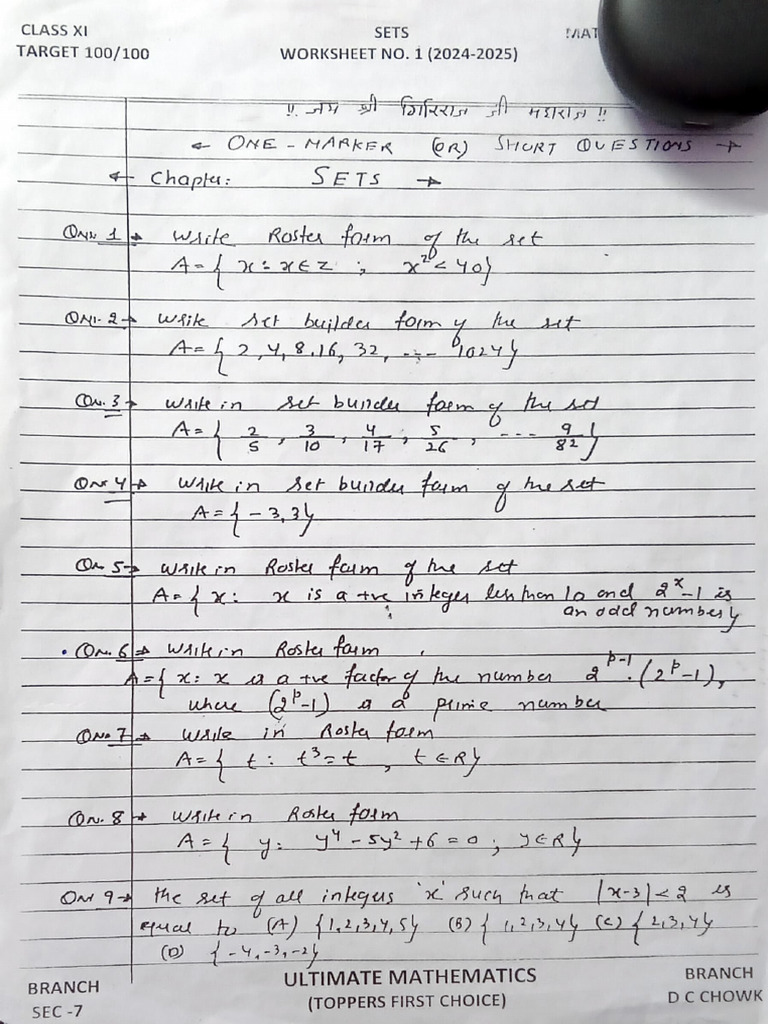 CLASS XI SETS MAT
TARGET 100/100 WORKSHEET NO. 1 (2024-2025)
!! जय श्री गिरिराज जी महाराज !!
← ONE-MARKER (OR) SHORT QUESTIONS →
← Chapter: SETS →
QN. 1 → Write Roster form of the set
A = { x : x ∈ Z ; x² < 40}
QN. 2 → Write set builder form of the set
A = { 2, 4, 8, 16, 32, ---- 1024}
QN. 3 → Write in set builder form of the set
A = { 2/5 , 3/10 , 4/17 , 5/26 , ---- 9/82 }
QN 4 → Write in set builder form of the set
A = { -3, 3}
QN 5 → Write in Roster form of the set
A = { x: x is a +ve integer less than 10 and 2^x - 1 is
an odd number}
QN. 6 → Write in Roster form
A = { x: x is a +ve factor of the number 2^(p-1) . (2^p - 1),
where (2^p - 1) is a prime number
QNo 7 → Write in Roster form
A = { t : t³ = t , t ∈ R}
QN. 8 → Write in Roster form
A = { y: y⁴ - 5y² + 6 = 0 ; y ∈ R}
QN 9 → The set of all integers 'x' such that |x-3| < 2 is
equal to (A) {1, 2, 3, 4, 5} (B) { 1, 2, 3, 4} (C) { 2, 3, 4}
(D) { -4, -3, -2}
BRANCH ULTIMATE MATHEMATICS BRANCH
SEC -7 (TOPPERS FIRST CHOICE) D C CHOWK